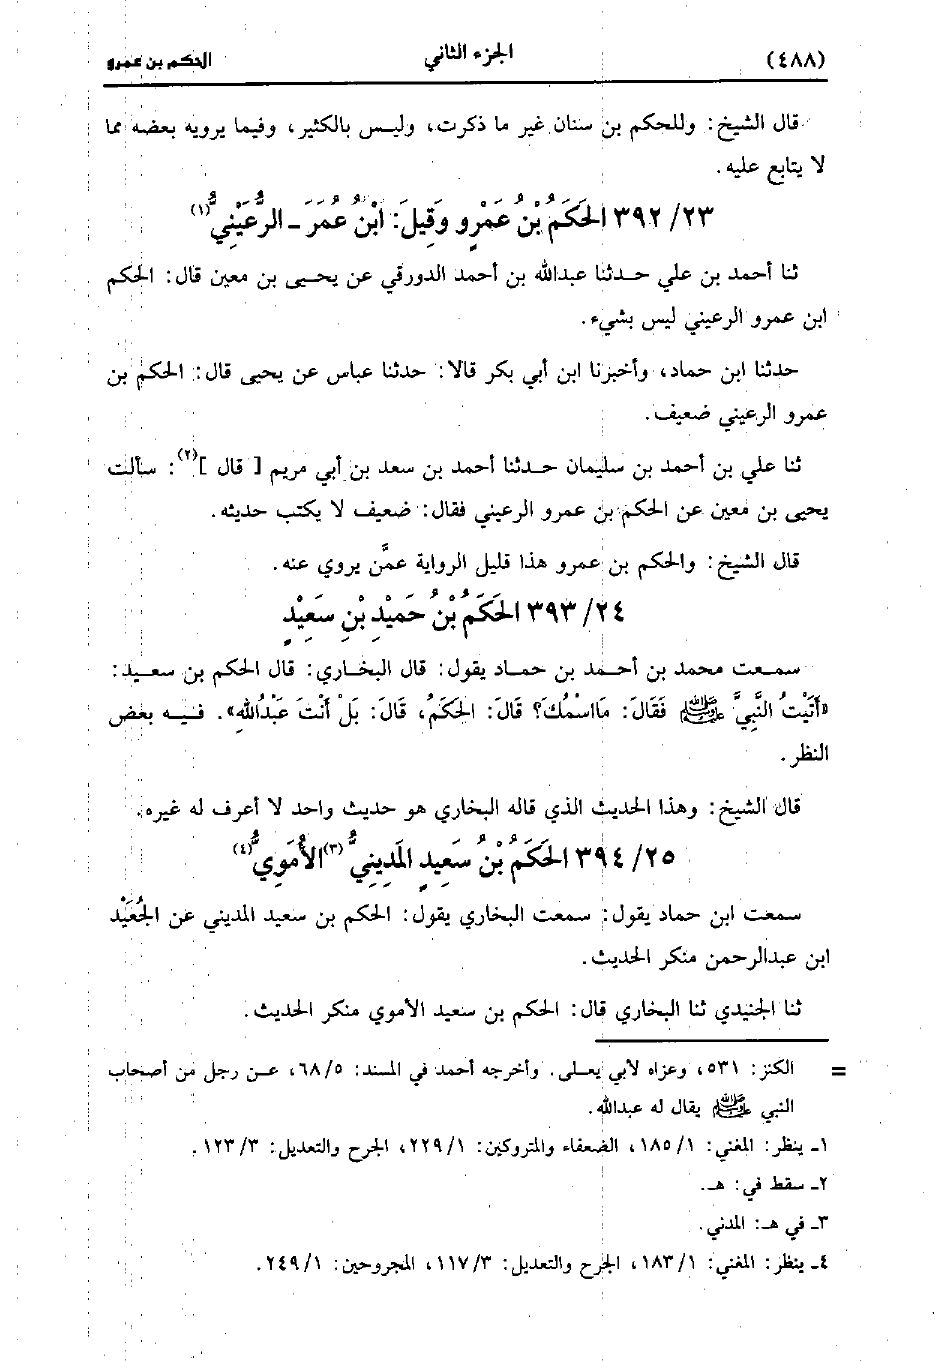 (٤٨٨) الجزء الثاني الحكم بن عمرو
قال الشيخ: وللحكم بن سنان غير ما ذكرت، وليس بالكثير، وفيما يرويه بعضه مما
لا يتابع عليه.
٢٣/ ٣٩٢ الحَكَمُ بْنُ عَمْرٍو وَقِيلَ: ابْنُ عُمَرَ ـ الرُّعَيْنِيُّ(١)
ثنا أحمد بن علي حدثنا عبدالله بن أحمد الدورقي عن يحيى بن معين قال: الحكم
ابن عمرو الرعيني ليس بشيء.
حدثنا ابن حماد، وأخبرنا ابن أبي بكر قالا: حدثنا عباس عن يحيى قال: الحكم بن
عمرو الرعيني ضعيف.
ثنا علي بن أحمد بن سليمان حدثنا أحمد بن سعد بن أبي مريم [ قال ](٢): سألت
يحيى بن معين عن الحكم بن عمرو الرعيني فقال: ضعيف لا يكتب حديثه.
قال الشيخ: والحكم بن عمرو هذا قليل الرواية عمَّن يروي عنه.
٢٤/ ٣٩٣ الحَكَمُ بْنُ حَمِيْدِ بْنِ سَعِيْدٍ
سمعت محمد بن أحمد بن حماد يقول: قال البخاري: قال الحكم بن سعيد:
«أَتَيْتُ النَّبِيَّ ﷺ فَقَالَ: مَااسْمُكَ؟ قَالَ: الحَكَمُ، قَالَ: بَلْ أَنْتَ عَبْدُاللهِ». فيه بعض
النظر.
قال الشيخ: وهذا الحديث الذي قاله البخاري هو حديث واحد لا أعرف له غيره.
٢٥/ ٣٩٤ الحَكَمُ بْنُ سَعِيدٍ المَدِينِيُّ(٣) الأُمَوِيُّ(٤)
سمعت ابن حماد يقول: سمعت البخاري يقول: الحكم بن سعيد المديني عن الجُعَيْد
ابن عبدالرحمن منكر الحديث.
ثنا الجنيدي ثنا البخاري قال: الحكم بن سعيد الأموي منكر الحديث.
= الكنز: ٥٣١، وعزاه لأبي يعلى. وأخرجه أحمد في المسند: ٦٨/٥، عن رجل من أصحاب
النبي ﷺ يقال له عبدالله.
١ـ ينظر: المغني: ١/ ١٨٥، الضعفاء والمتروكين: ١/ ٢٢٩، الجرح والتعديل: ٣/ ١٢٣.
٢ـ سقط في: هـ.
٣ـ في هـ: المدني.
٤ـ ينظر: المغني: ١/ ١٨٣، الجرح والتعديل: ٣/ ١١٧، المجروحين: ١/ ٢٤٩.